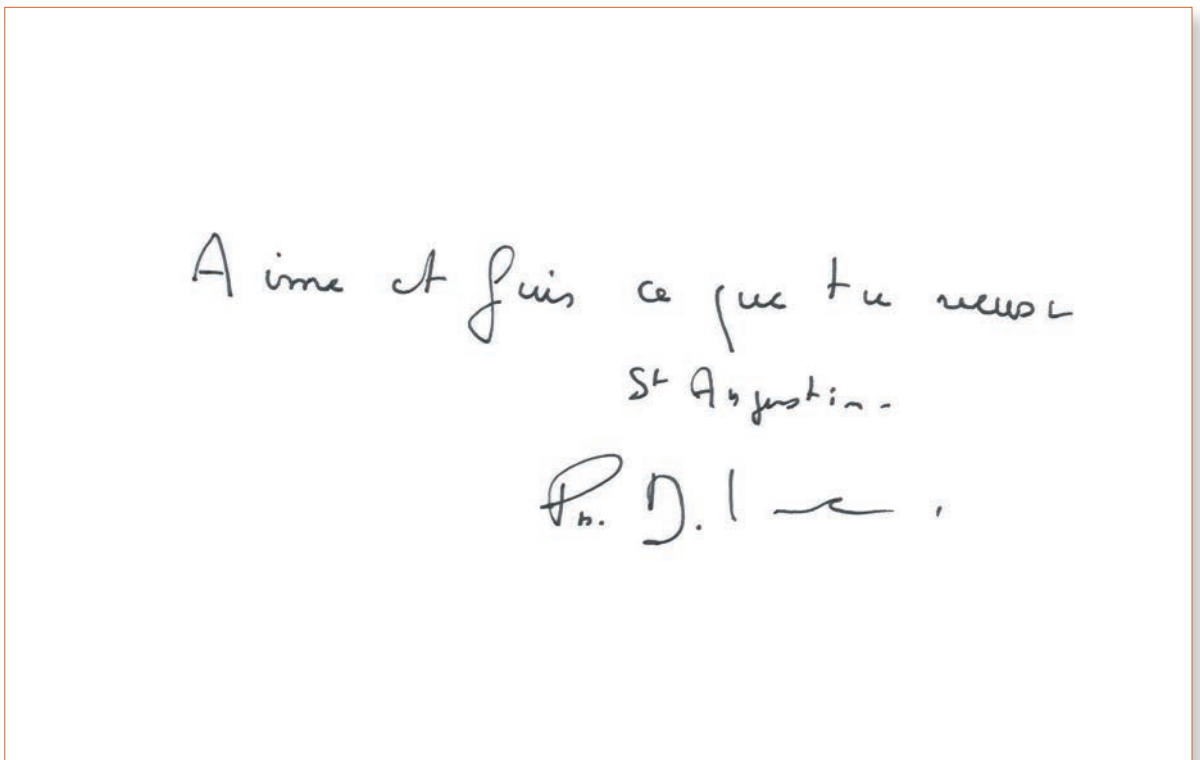 Aime et fais ce que tu veux
St Augustin.
Ph. D.